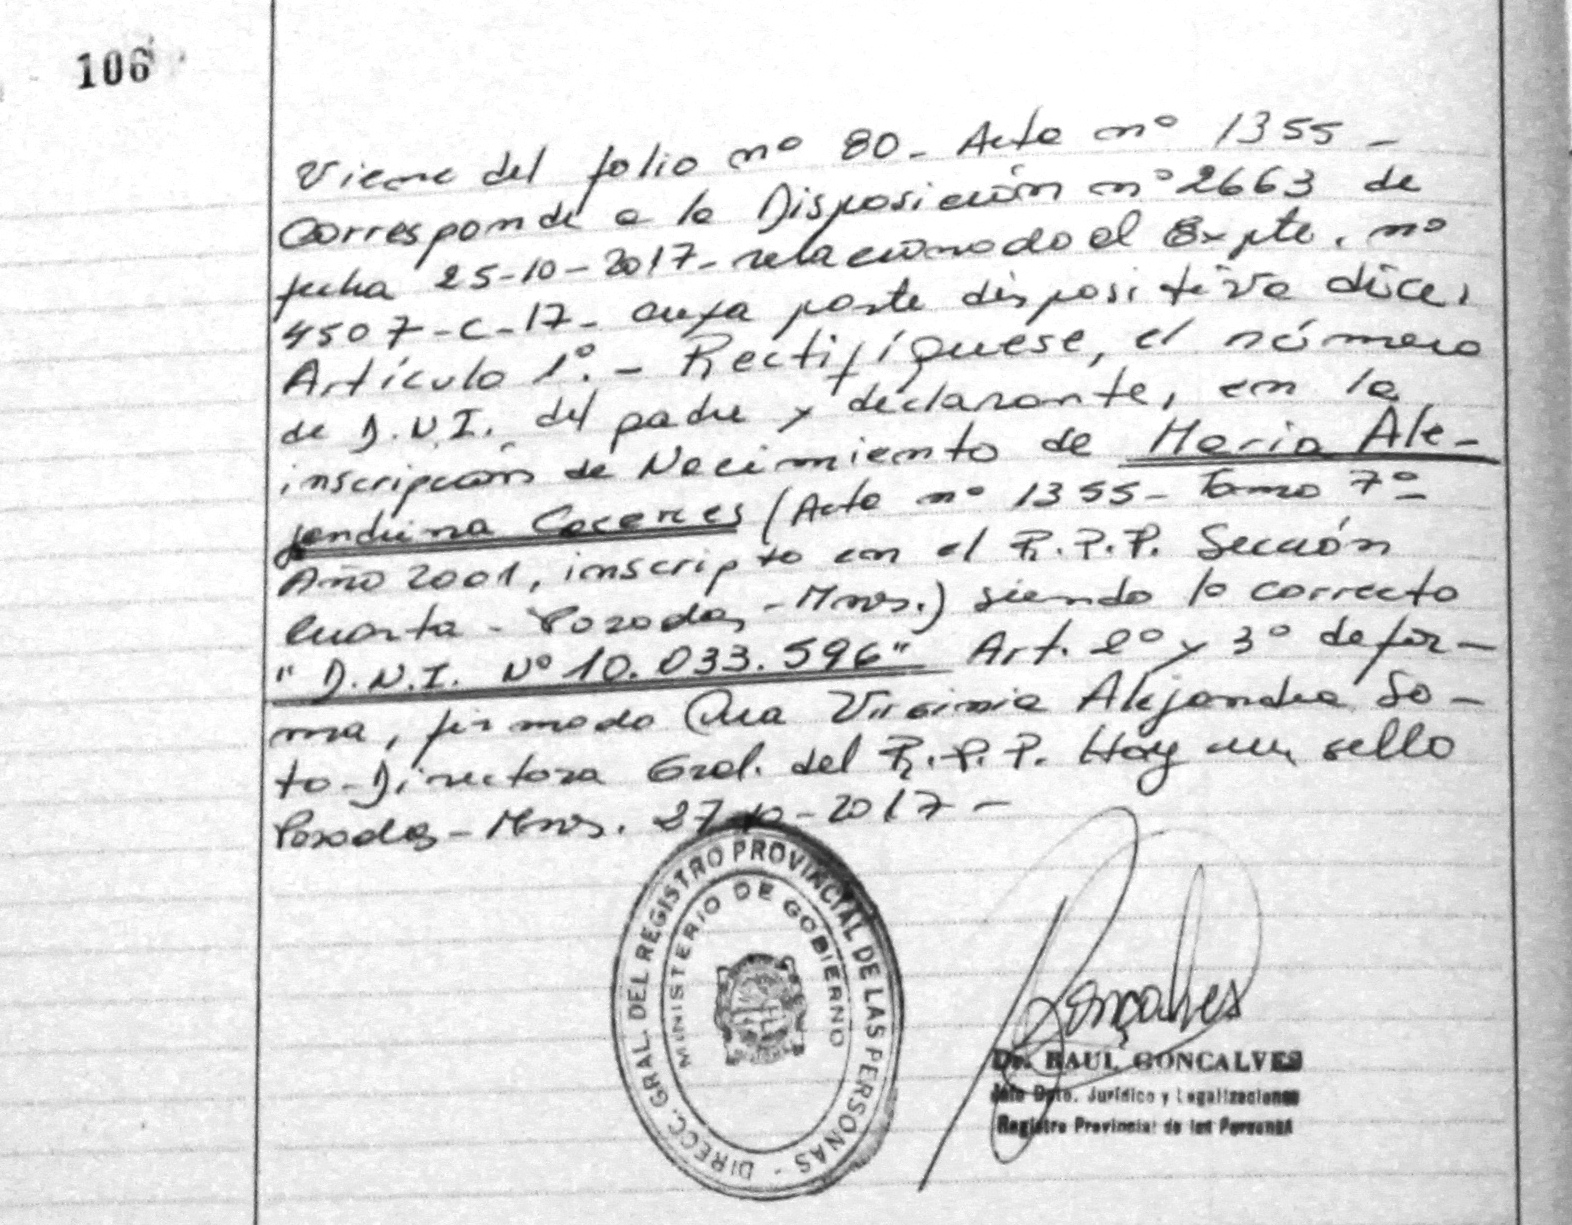 106
Viene del folio nº 80 - Acta nº 1355 -
Corresponde a la Disposición nº 2663 de
fecha 25-10-2017 - relacionado al Expte. nº
4507-C-17 - cuya parte dispositiva dice:
Artículo 1º. - Rectifíquese, el número
de D.N.I. del padre y declarante, en la
inscripción de Nacimiento de Maria Ale-
jandrina Caceres (Acta nº 1355 - Tomo 7º -
Año 2001, inscripto en el R.P.P. Sección
Cuarta - Posadas - Mnes.) siendo lo correcto
"D.N.I. Nº 10.033.596" Art. 2º y 3º de for-
ma, firmado Dra Virginia Alejandra So-
to - Directora Gral. del R.P.P. Hay un sello
Posadas - Mnes. 27-10-2017 -
DIRECC. GRAL. DEL REGISTRO PROVINCIAL DE LAS PERSONAS -
MINISTERIO DE GOBIERNO
Gonçalves
Dr. RAUL GONCALVES
Jefe Dpto. Jurídico y Legalizaciones
Registro Provincial de las Personas